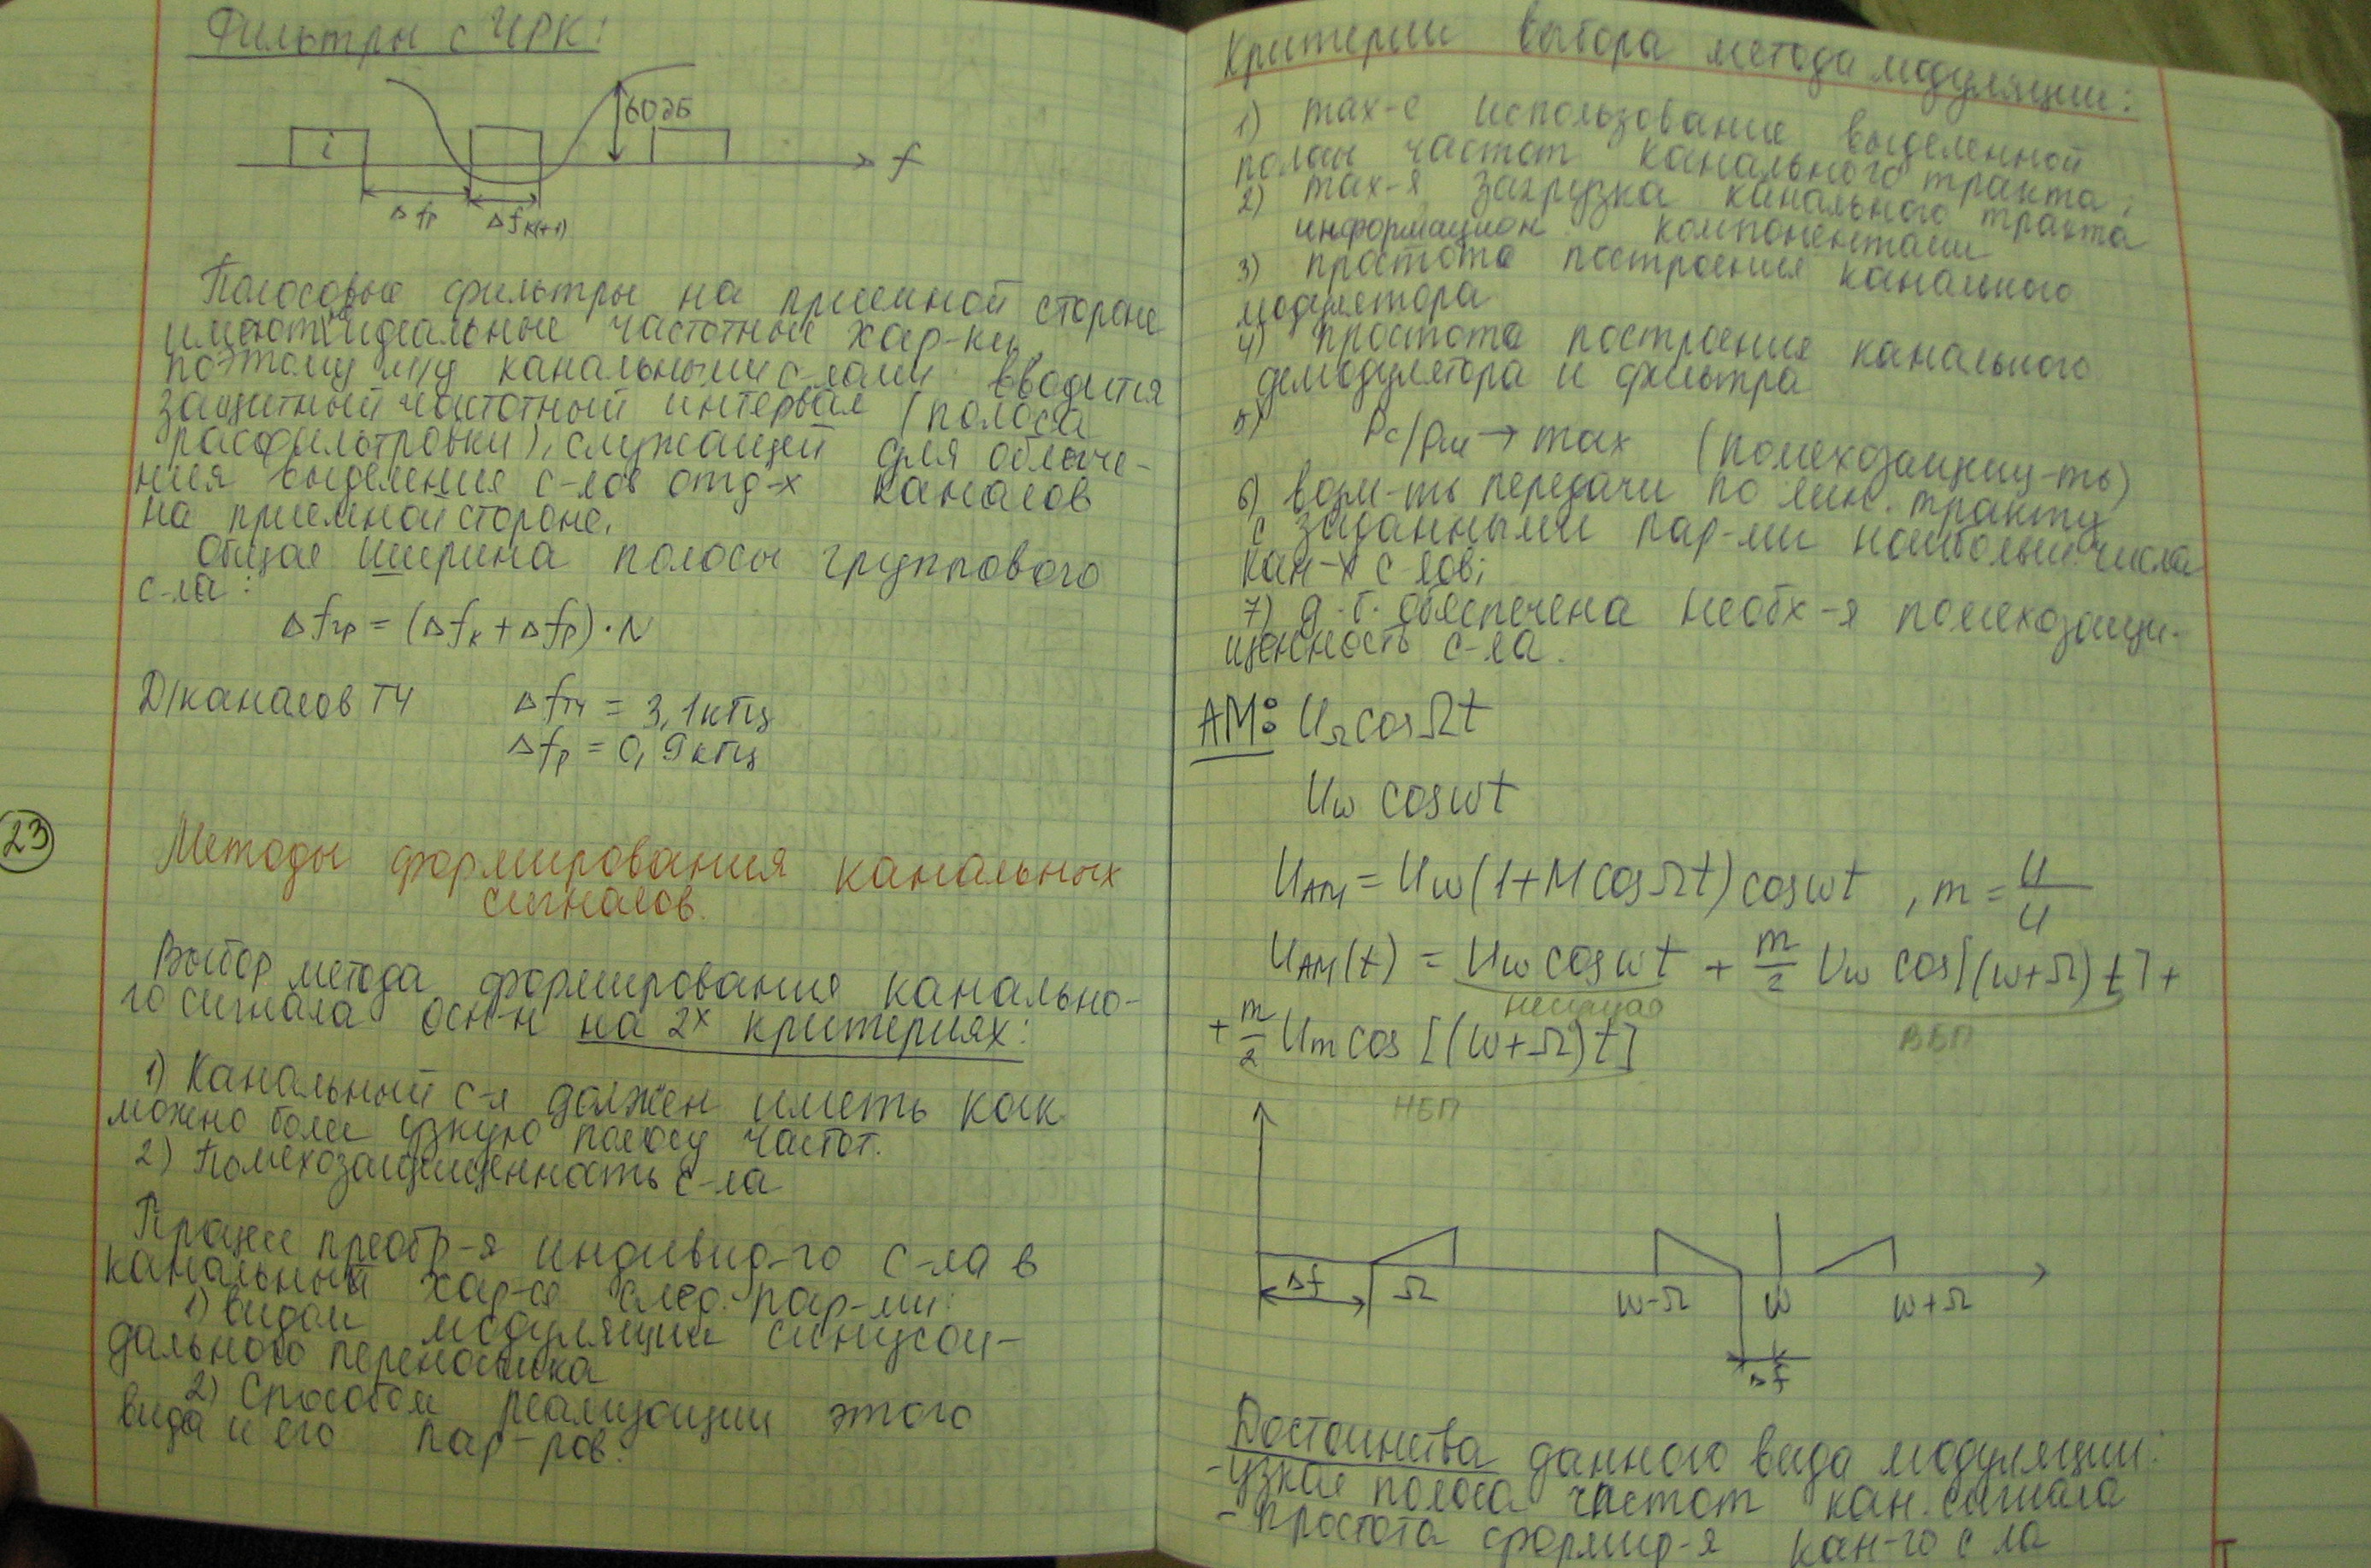 Фильтры с ЧРК:
60дБ
i
f
Δfр
Δfк(i+1)
Полосовые фильтры на приемной стороне
имеют идеальные частотные хар-ки,
поэтому м/у канальными с-лами вводится
защитный частотный интервал (полоса
расфильтровки), служащей для облегче-
ния выделения с-лов отд-х каналов
на приемной стороне.
Общая ширина полосы группового
с-ла:
Δfгр = (Δfк + Δfр)·N
Д/каналов ТЧ Δfтч = 3,1кГц
Δfр = 0,9кГц
23
Методы формирования канальных
сигналов.
Выбор метода формирования канально-
го сигнала осн-н на 2х критериях:
1) Канальный с-л должен иметь как
можно более узкую полосу частот.
2) Помехозащищенность с-ла
Процесс преобр-я индивид-го с-ла в
канальный хар-ся след. пар-ми:
1) видом модуляции синусои-
дального переносчика
2) Способом реализации этого
вида и его пар-ров.
Критерии выбора метода модуляции:
1) max-е использование выделенной
полосы частот канального тракта;
2) max-я загрузка канального тракта
информацион. компонентами
3) простота построения канального
модулятора
4) простота построения канального
демодулятора и фильтра
5) Pс/Pш → max (помехозащищ-ть)
6) возм-ть передачи по лин. тракту
с заданными пар-ми наибольш. числа
кан-х с-лов;
7) д.б. обеспечена необх-я помехозащи-
щенность с-ла.
АМ: UΩ cosΩt
Uω cosωt
UАМ = Uω(1+M cosΩt) cosωt , m = U/U
UАМ(t) = Uω cosωt + m/2 Uω cos[(ω+Ω)t] +
несущая
ВБП
+ m/2 Um cos[(ω+Ω)t]
НБП
Δf Ω ω-Ω ω ω+Ω
Δf
Достоинства данного вида модуляции:
- узкая полоса частот кан. сигнала
- простота формир-я кан-го с-ла